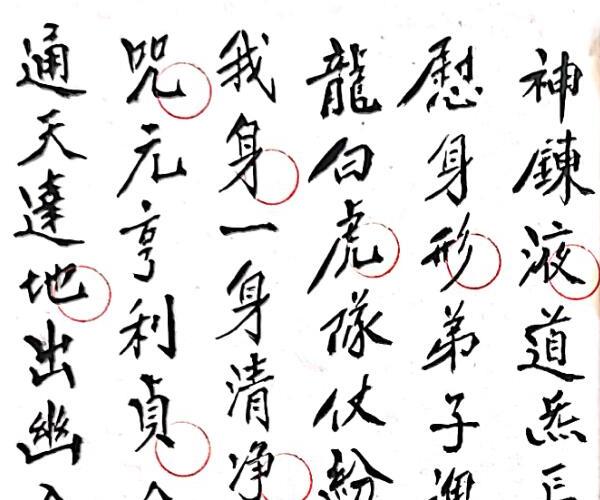 神鍊液道炁
慰身形弟子魂
龍白虎隊仗紛
我身一身清净
咒元亨利貞
通天達地出幽